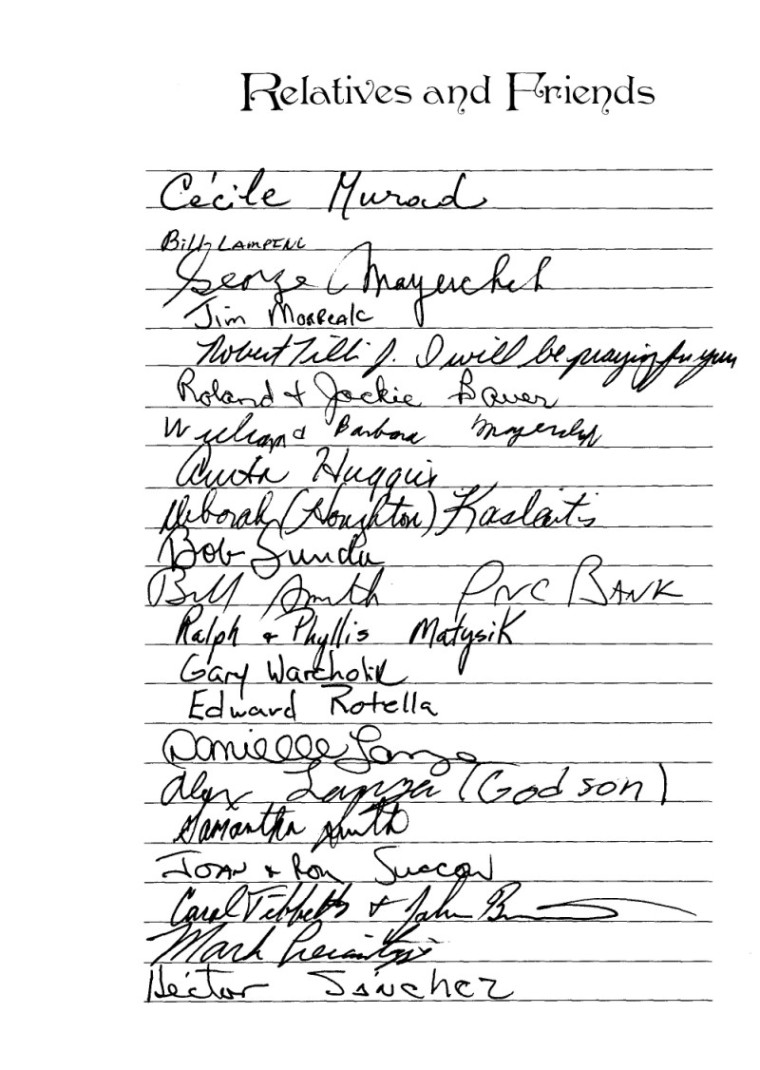 Relatives and Friends
Cécile Murad
Billy LAMPING
George Mayerchek
Jim
Robert Tilli Jr. I will be praying for you
Roland + Jackie Bauer
William and Barbara
Anita Huggins
Deborah (Houghton) Kaslaitis
Bob Sunda
Bill Smith PNC BANK
Ralph + Phyllis Matysik
Gary Warcholik
Edward Rotella
Danielle Lanza
Alex Lanza (Godson)
Samantha Smith
JOAN + Ron
Carol Tibbetts + John
Mark
Hector SANcHEZ